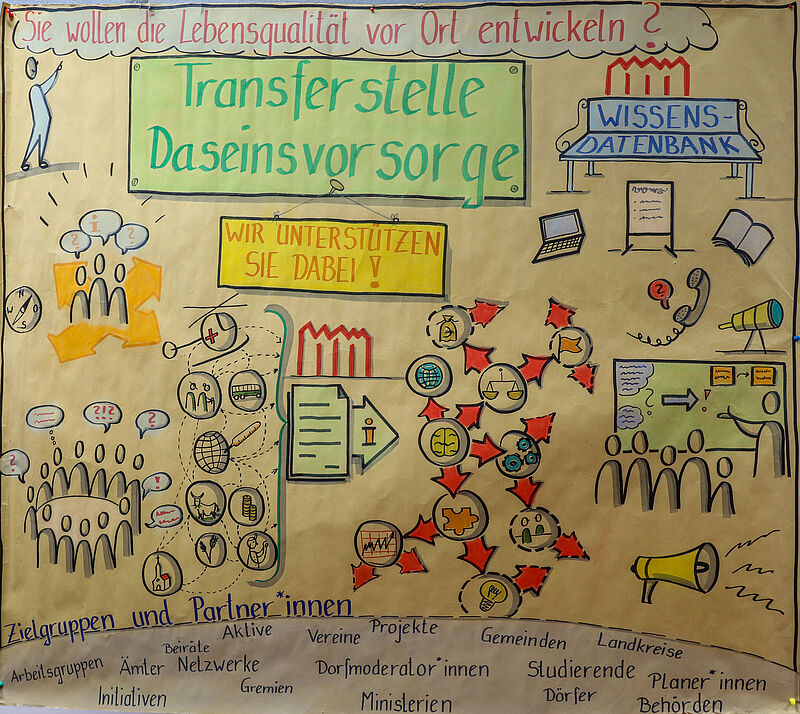 Sie wollen die Lebensqualität vor Ort entwickeln?
Transferstelle
Daseinsvorsorge
WISSENS-
DATENBANK
WIR UNTERSTÜTZEN
SIE DABEI!
? i ?
N
W O
S
?
i
? !
? ?!? ?
?
!
Zielgruppen und Partner*innen
Aktive Vereine Projekte Gemeinden Landkreise
Beiräte
Arbeitsgruppen Ämter Netzwerke Dorfmoderator*innen Studierende Planer*innen
Initiativen Gremien Ministerien Dörfer Behörden